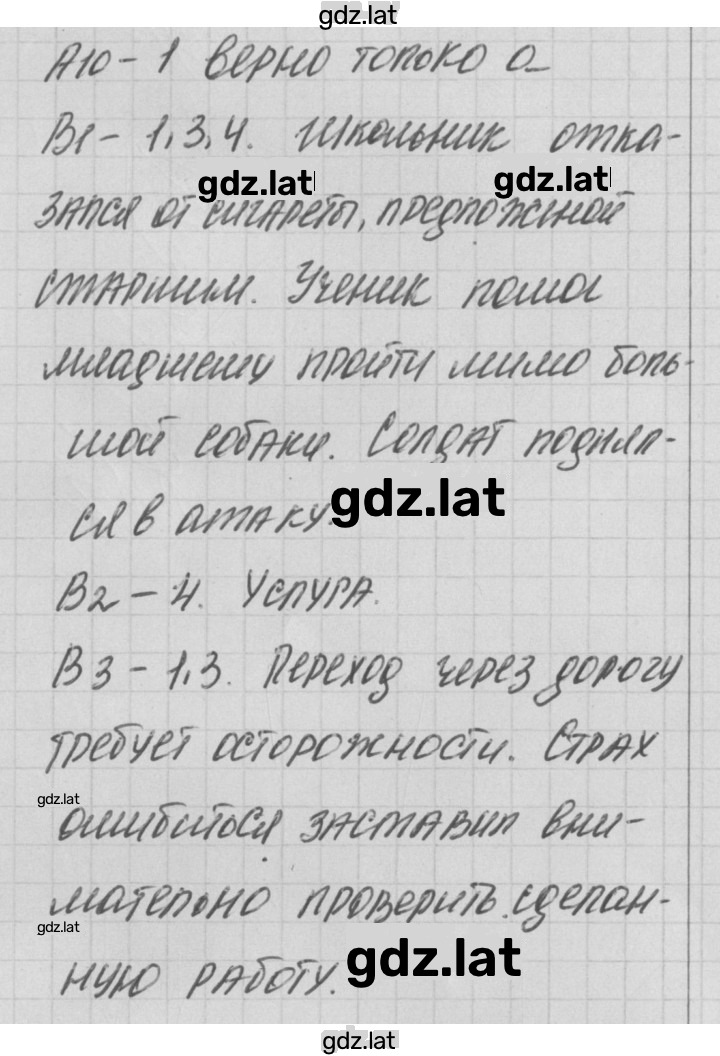 gdz.lat
А10 – 1 верно только а
В1 – 1,3,4. Школьник отка-
gdz.lat gdz.lat
зался от сигареты, предложеной
старшим. Ученик помог
младшему пройти мимо боль-
шой собаки. Солдат поднял-
ся в атаку.
gdz.lat
В2 – 4. Услуга.
В3 – 1,3. Переход через дорогу
требует осторожности. Страх
gdz.lat
ошибиться заставил вни-
мательно проверить сделан-
gdz.lat
ную работу.
gdz.lat
gdz.lat